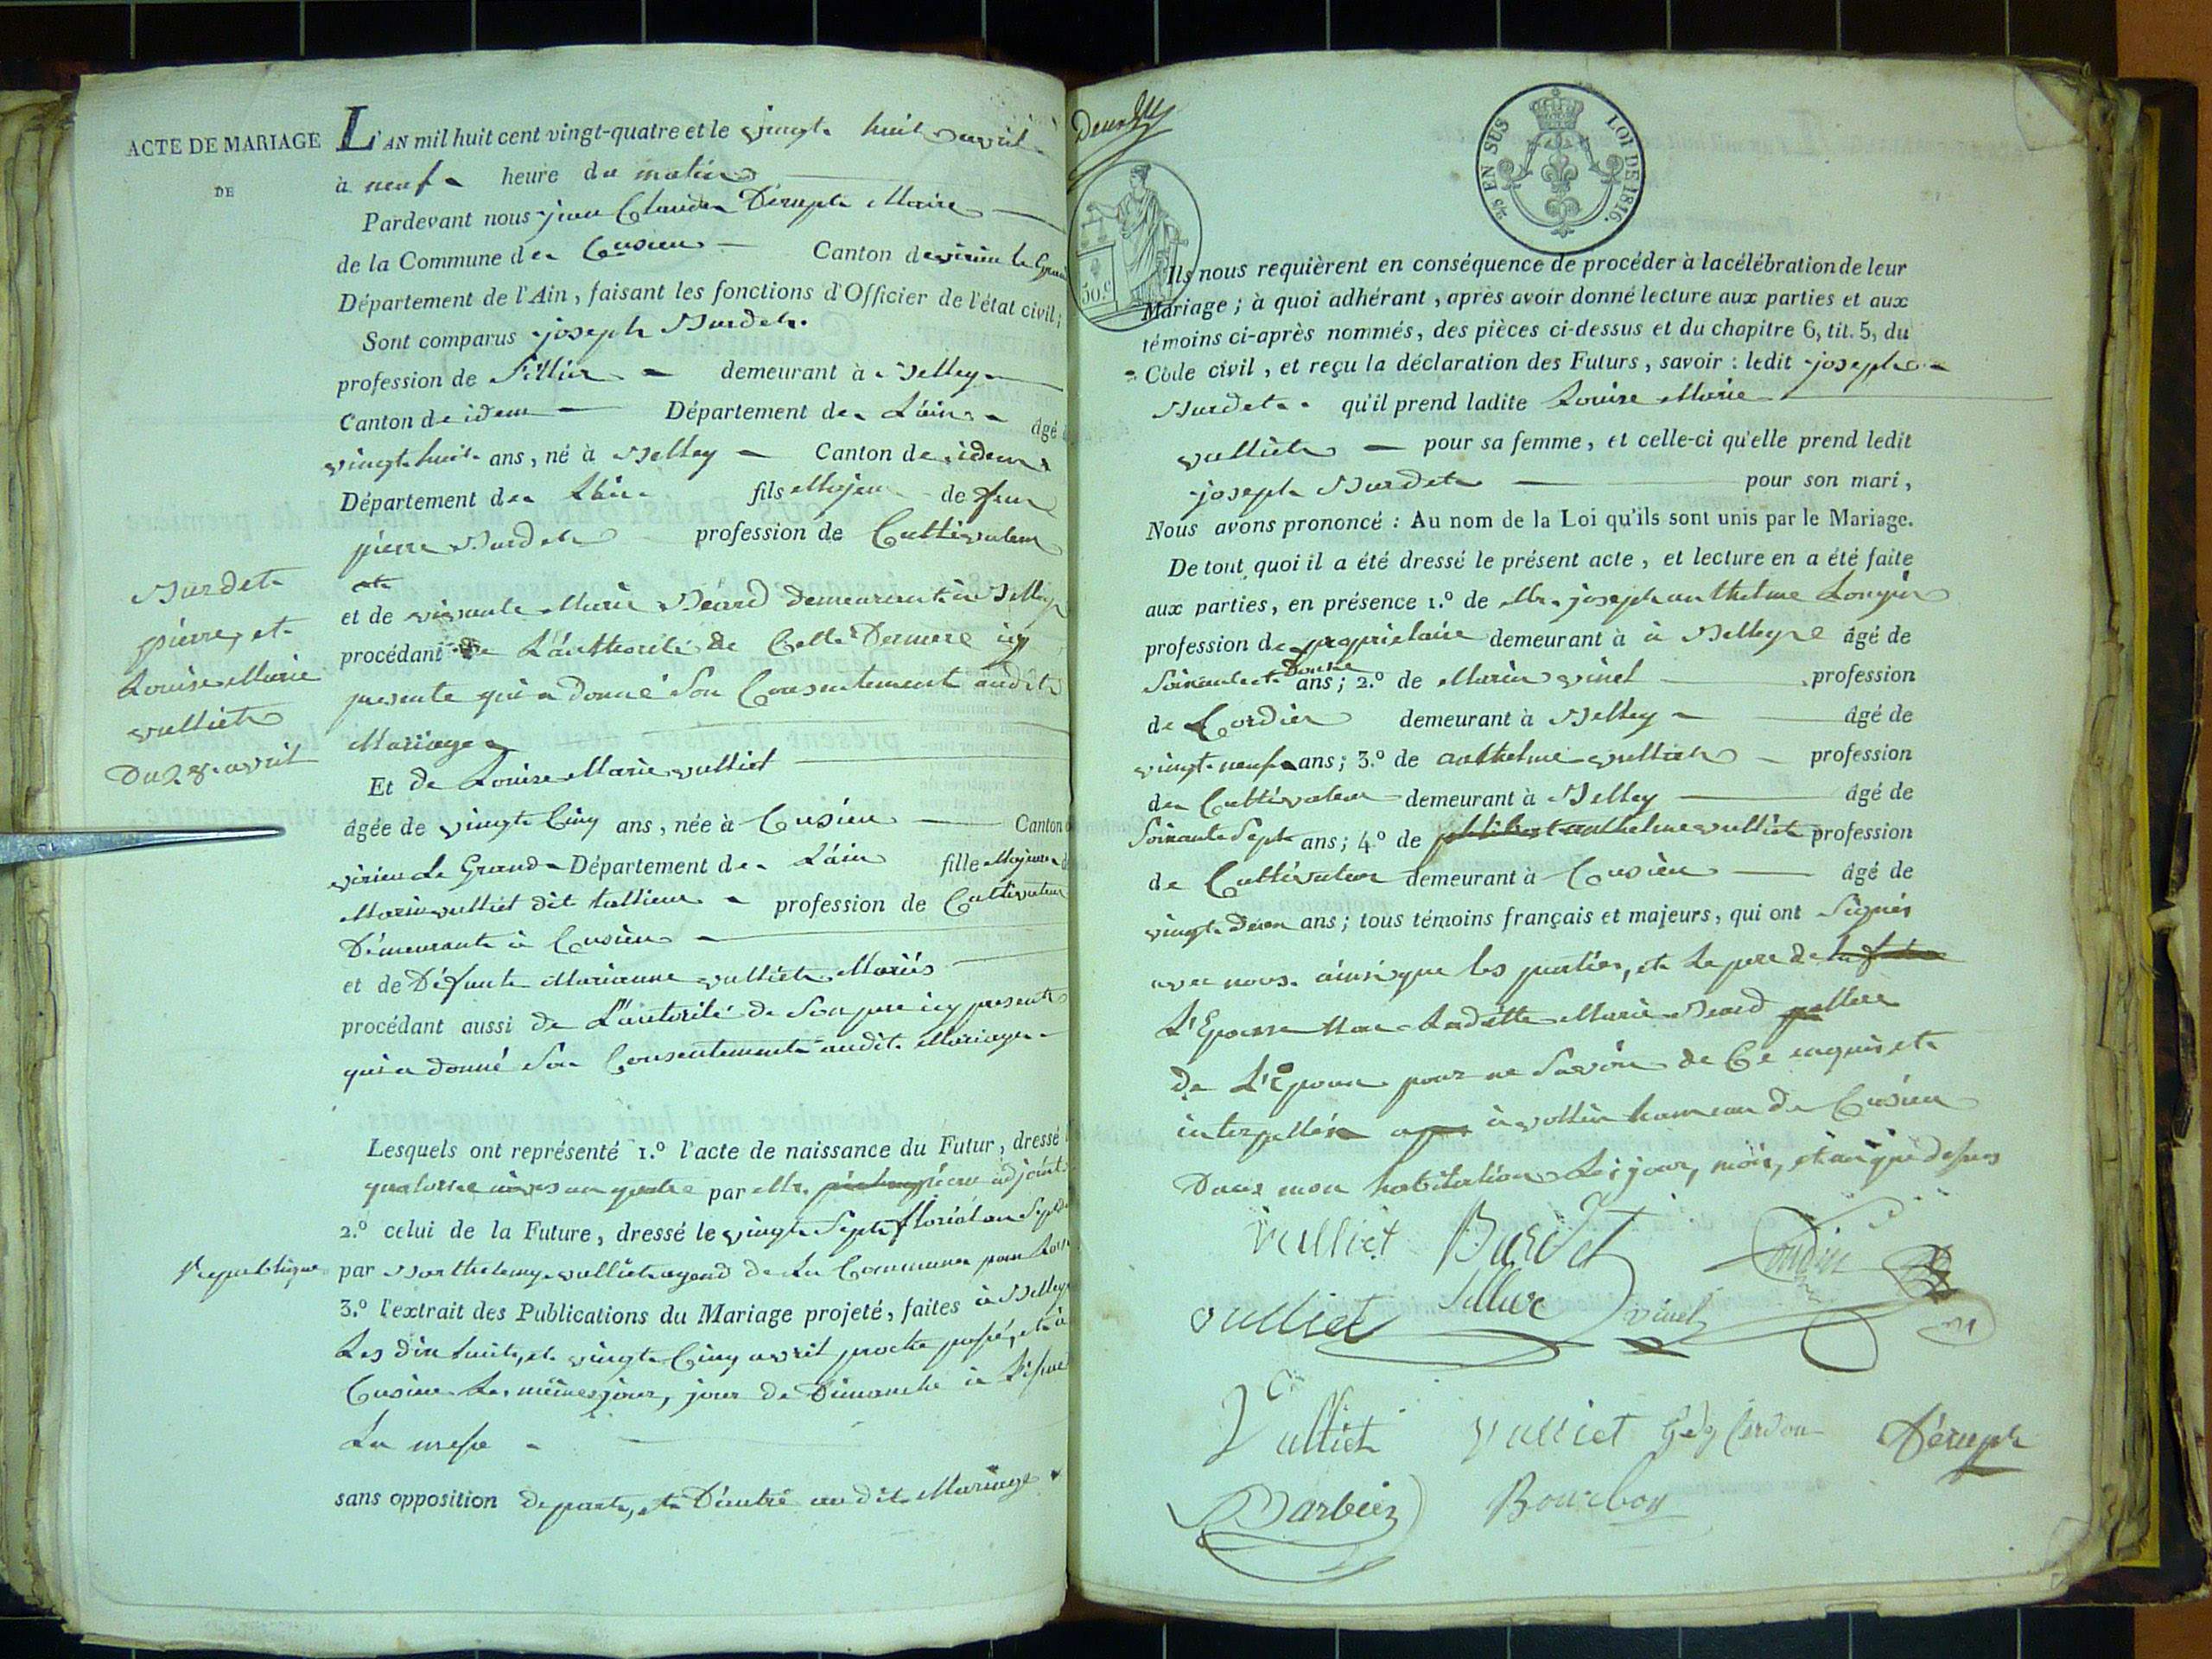 ACTE DE MARIAGE
DE
Burdet
pierre, et
Louise Marie
vulliet
Du 28. avril
L'AN mil huit cent vingt-quatre et le vingt huit avril
à neuf heure du matin
Pardevant nous jean Claude Dérupt Maire
de la Commune de Cusieu Canton de virieu le Grand
Département de l'Ain, faisant les fonctions d'Officier de l'état civil;
Sont comparus joseph Burdet
profession de Sillier demeurant à Belley
Canton de idem Département de L'ain âgé
vingt huit ans, né à Belley Canton de idem
Département de L'ain fils Majeur de feu
pierre Burdet profession de Cultivateur
et de vivante Marie Béard demeurant à Belley
procédant de L'authorité de Celle Derniere icy
presente qui a donné Son Consentement audit
Mariage
Et de Louise Marie vulliet
âgée de vingt Cinq ans, née à Cusieu Canton
virieu Le Grand Département de L'ain fille Majeure
Marin vulliet dit tallieur profession de Cultivateur
Demeurant à Cusieu
et de Défunte Marianne vulliet Mariés
procédant aussi de L'autorité de Son pere icy present
qui a donné Son Consentement audit Mariage
Lesquels ont représenté 1.º l'acte de naissance du Futur, dressé
par Mr. adjoint
2.º celui de la Future, dressé le vingt Sept floréal an Sept
republique
par Barthelemy vulliet agend de La Commune pour
3.º l'extrait des Publications du Mariage projeté, faites à Belley
Les dix huit, et vingt Cinq avril proche passé, et à
Cusieu Les mêmes jour, jour de Dimanche à L'issue
La messe
sans opposition de part, et D'autre audit Mariage
25 EN SUS LOI DE 1816.
50.c
Ils nous requièrent en conséquence de procéder à la célébration de leur
Mariage; à quoi adhérant, après avoir donné lecture aux parties et aux
témoins ci-après nommés, des pièces ci-dessus et du chapitre 6, tit. 5, du
Code civil, et reçu la déclaration des Futurs, savoir: ledit joseph
Burdet qu'il prend ladite Louise Marie
vulliet pour sa femme, et celle-ci qu'elle prend ledit
joseph Burdet pour son mari,
Nous avons prononcé: Au nom de la Loi qu'ils sont unis par le Mariage.
De tout quoi il a été dressé le présent acte, et lecture en a été faite
aux parties, en présence 1.º de Mr. joseph anthelme
profession de proprietaire demeurant à à Belley âgé de
Soixante et Douze ans; 2.º de Marin vinet profession
de Cordier demeurant à Belley âgé de
vingt neuf ans; 3.º de anthelme vulliet profession
de Cultivateur demeurant à Belley âgé de
Soixante Sept ans; 4.º de philibert anthelme vulliet profession
de Cultivateur demeurant à Cusieu âgé de
vingt deux ans; tous témoins français et majeurs, qui ont Signés
avec nous. ainsi que les parties, et Le pere de
L'Epouse Non Laditte Marie Beard Mere
de L'Epoux pour ne Savoir de Ce enquis et
interpellés à vollien hameau de Cusieu
Dans mon habitation Les jour, mois, et an que dessus
vulliet Burdet
vulliet Sillier vinet
Vulliet Vulliet Cerdon Dérupt
Barbier Bourbon